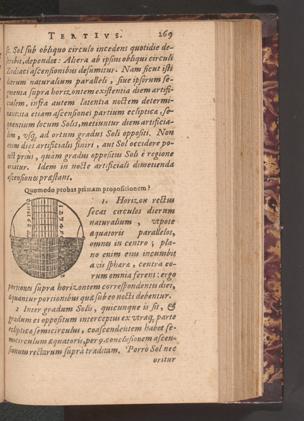 TERTIVS. 269
ſ. Sol ſub obliquo circulo incedens quotidie de-
ſcribit, dependēt: Altera ab ipſius obliqui circuli
Zodiaci aſcenſionibus deſumitur. Nam ſicut iſti
dierum naturalium paralleli, ſiue ipſorum ſe-
gmenta ſupra horizontem exiſtentia diem artifi-
cialem, infra autem latentia noctem determi-
nant: ita etiam aſcenſiones partium eclipticæ, ſe-
quentium locum Solis, metiuntur diem artificia-
lem, vſq, ad ortum gradus Soli oppoſiti. Non
enim dies artificialis finiri, aut Sol occidere po-
teſt prius, quam gradus oppoſitus Soli è regione
oriatur. Idem in nocte artificiali dimetienda
aſcenſiones præſtant.
Quomodo probas primam propoſitionem?
1. Horizon rectus
ſecat circulos dierum
naturalium, vtpote
æquatoris parallelos,
omnes in centro; pla-
no enim eius incumbit
axis ſphæræ, centra eo-
rum omnia ferens: ergo
portiones ſupra horizontem correſpondentes diei,
æquantur portionibus quæ ſub eo nocti debentur.
2 Inter gradum Solis, quicunque is ſit, &
gradum ei oppoſitum interceptus ex vtraq, parte
eclipticæ ſemicirculus, coaſcendentem habet ſe-
micirculum æquatoris, per 9. concluſionem aſcen-
ſionum rectarum ſupra traditam. Porrò Sol nec
oritur